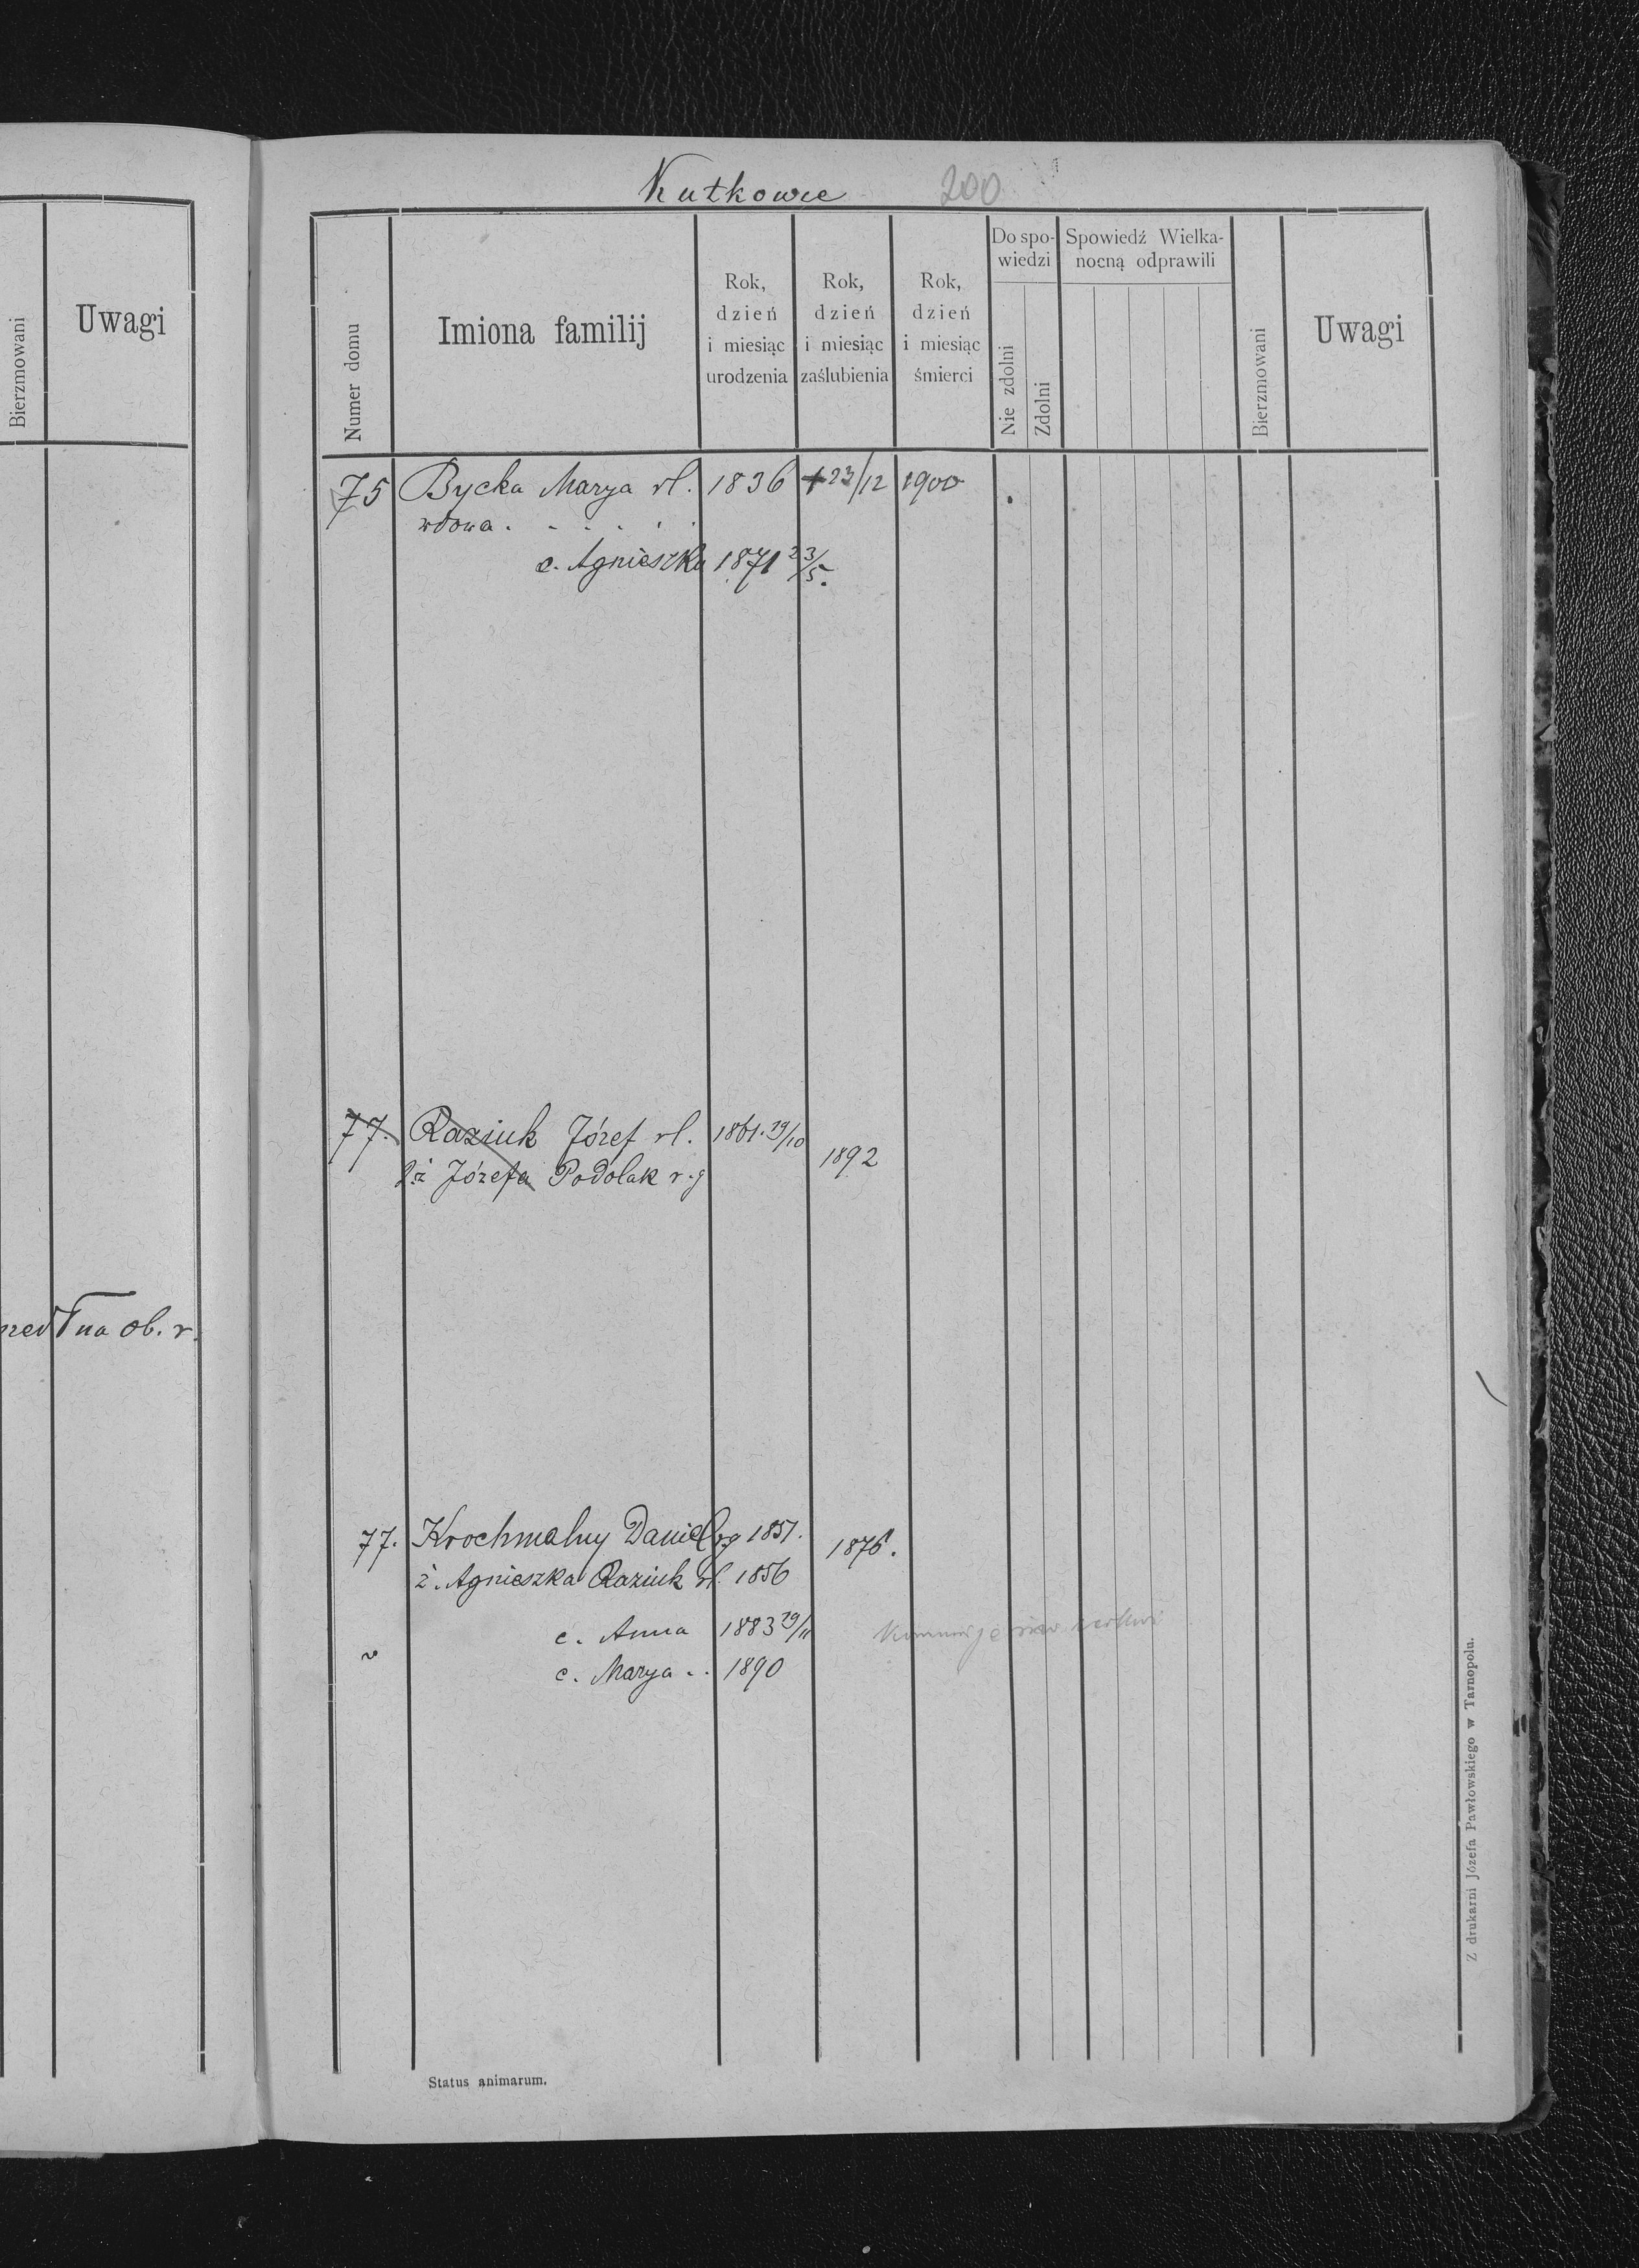 Bierzmowani
Uwagi
na ob. r.
Kutkowce 200
Numer domu
Imiona familij
Rok, dzień i miesiąc urodzenia
Rok, dzień i miesiąc zaślubienia
Rok, dzień i miesiąc śmierci
Do spowiedzi
Nie zdolni
Zdolni
Spowiedź Wielkanocną odprawili
Bierzmowani
Uwagi
75 Bycka Marya rl. 1836 +23/12 1900
wdowa . . . . . .
c. Agnieszka 1871 23/5.
77. Raziuk Józef rl. 1861. 19/10
ż Józefa Podolak r. g 1892
77. Krochmalny Daniel rg 1851. 1876.
ż. Agnieszka Raziuk rl. 1856
c. Anna 1883 29/11
c. Marya . . 1890
Status animarum.
Z drukarni Józefa Pawłowskiego w Tarnopolu.